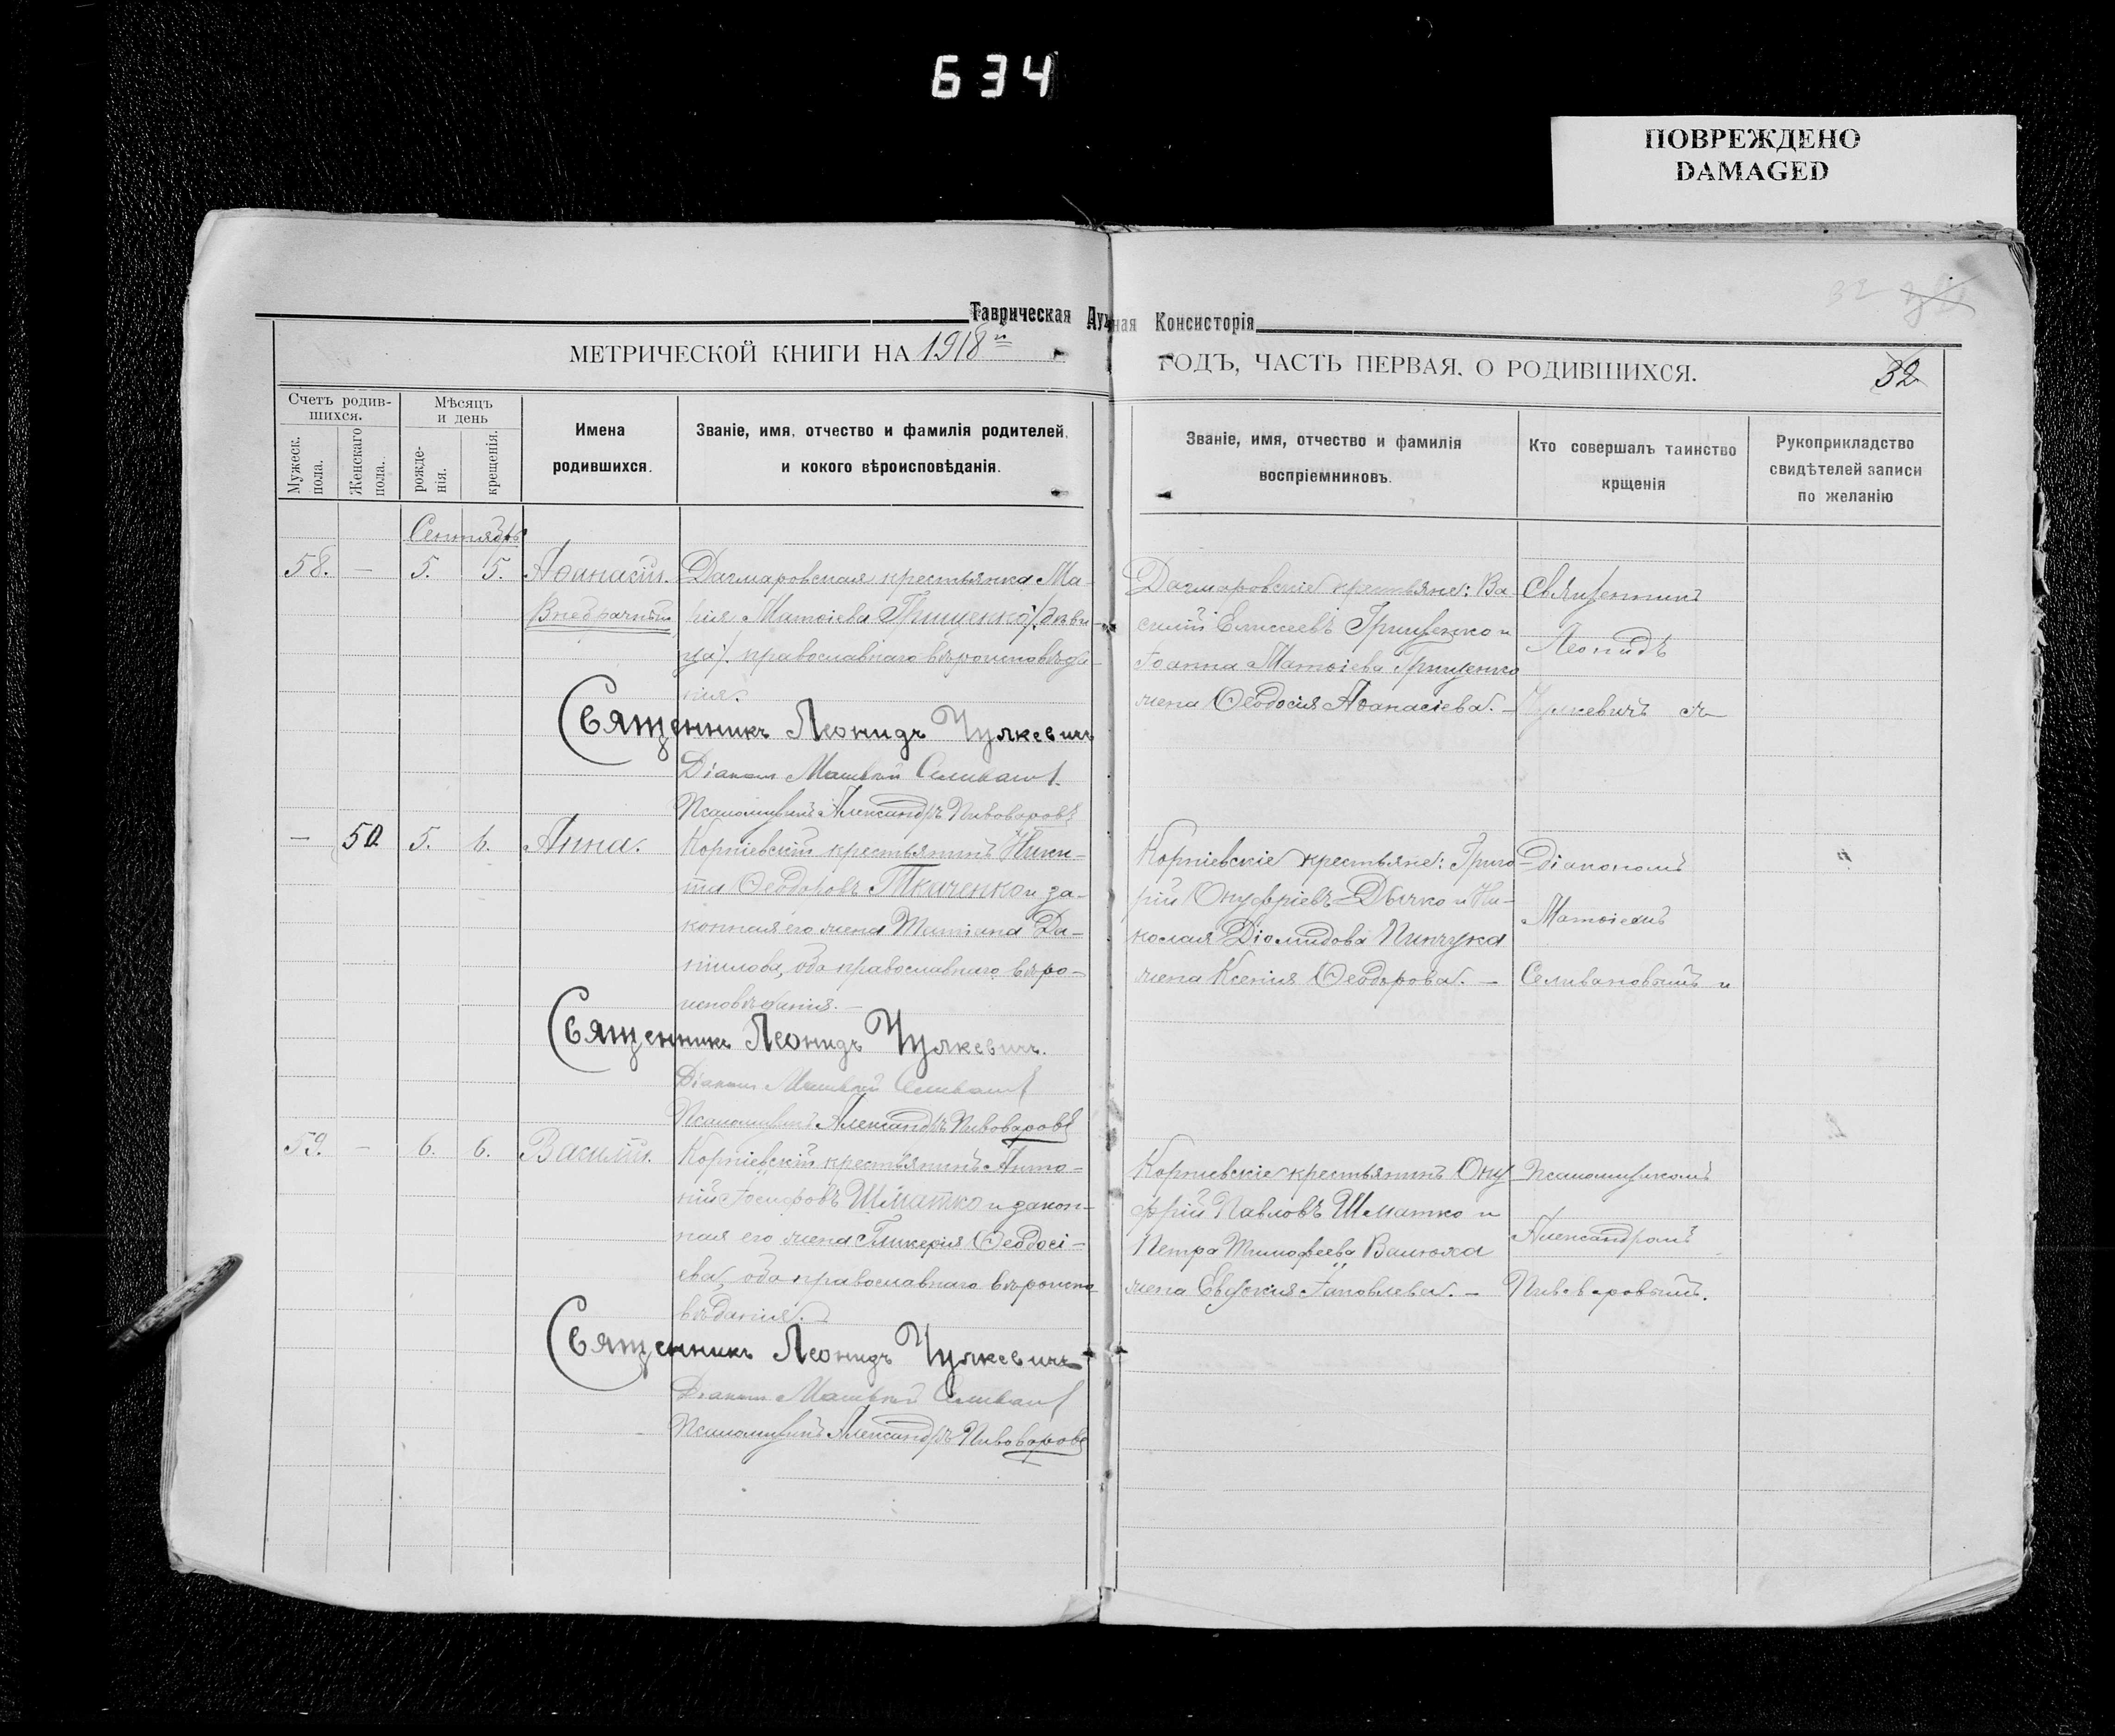 634
ПОВРЕЖДЕНО
DAMAGED
Таврическая Духовная Консисторія
32
МЕТРИЧЕСКОЙ КНИГИ НА 1918й ГОДЪ, ЧАСТЬ ПЕРВАЯ. О РОДИВШИХСЯ.
32
Счетъ родив-
шихся.
Мѣсяцъ
и день
Мужеск.
пола.
Женскаго
пола.
рожде-
нія.
крещенія.
Имена
родившихся.
Званіе, имя, отчество и фамилія родителей,
и кокого вѣроисповѣданія.
Званіе, имя, отчество и фамилія
воспріемниковъ.
Кто совершалъ таинство
крщенія
Рукоприкладство
свидѣтелей записи
по желанію
Сентябрь
58. — 5. 5. Аѳанасій.
Внебрачный
Дагмаровская крестьянка Ма-
рія Матѳіева Грищенко /дѣви-
ца/. православнаго вѣроисповѣда-
нія.
Священникъ Леонидъ Чулкевичъ
Діаконъ Матвѣй Селивановъ
Псаломщикъ Александръ Пивоваровъ
Дагмаровскіе крестьяне: Ва-
силій Елисеевъ Грищенко и
Іоанна Матѳіева Грищенко
жена Ѳеодосія Аѳанасіева. —
Священникъ
Леонидъ
Чулкевичъ съ
— 50 5. 6. Анна.
Корніевскій крестьянинъ Ники-
та Ѳеодоровъ Ткаченко и за-
конная его жена Татіана Да-
ніилова, оба православнаго вѣро-
исповѣданія. —
Священникъ Леонидъ Чулкевичъ.
Діаконъ Матвѣй Селивановъ
Псаломщикъ Александръ Пивоваровъ
Корніевскіе крестьяне: Григо-
рій Онуфріевъ Дычко и Ни-
колая Діомидова Пинчука
жена Ксенія Ѳеодорова. —
Діакономъ
Матѳіемъ
Селивановымъ и
59. — 6. 6. Василій.
Корніевскій крестьянинъ Анто-
ній Іосифовъ Шматко и закон-
ная его жена Гликерія Ѳеодосі-
ева, оба православнаго вѣроиспо-
вѣданія.
Священникъ Леонидъ Чулкевичъ
Діаконъ Матвѣй Селивановъ
Псаломщикъ Александръ Пивоваровъ
Корніевскіе крестьянинъ Ону-
фрій Павловъ Шматко и
Петра Тимофеева
жена Евдокія Іаковлева. —
Псаломщикомъ
Александромъ
Пивоваровымъ.